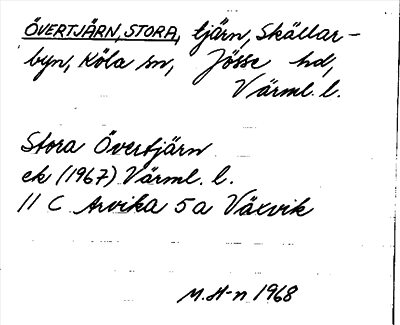 ÖVERTJÄRN, STORA, tjärn, Skällar-
byn, Köla sn, Jösse hd,
Värml. l.
Stora Övertjärn
ek (1967) Värml. l.
11 C Arvika 5a Växvik
M. H-n 1968